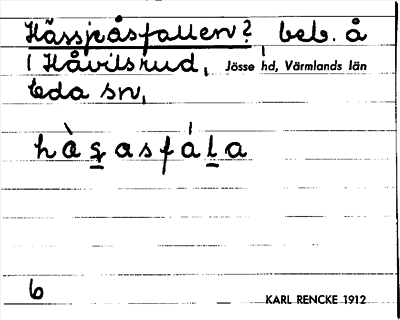 Hässjeåsfallen? beb. å
1 Håvilsrud, Jösse hd, Värmlands län
Eda sn,
hàs̠asfáḻa
6 KARL RENCKE 1912